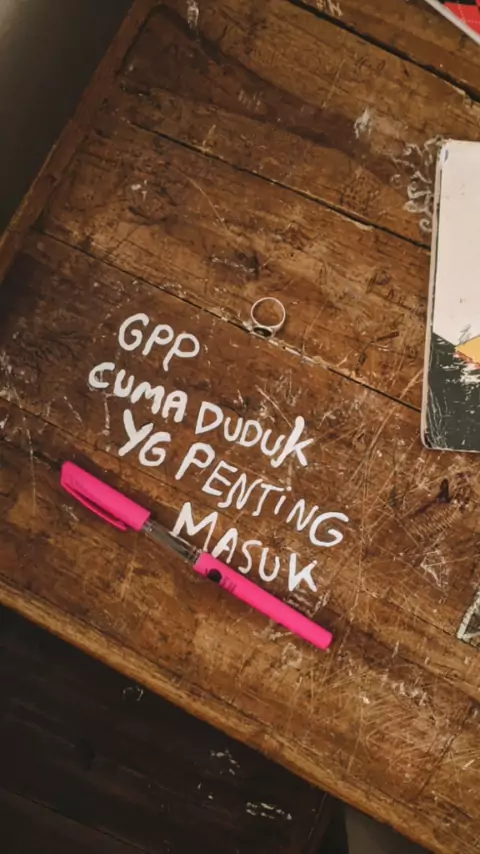 GPP
CUMA DUDUK
YG PENTING
MASUK